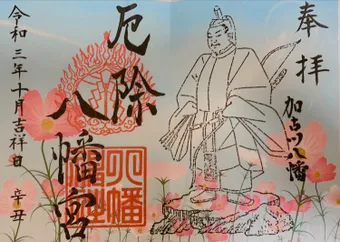 奉拝
加古川八幡
厄除
八幡宮
八幡
令和三年十月吉祥日 辛丑